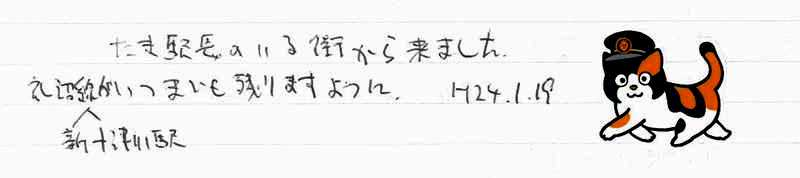 たま駅長のいる街から来ました.
札沼線がいつまでも残りますように. H24.1.19
新十津川駅